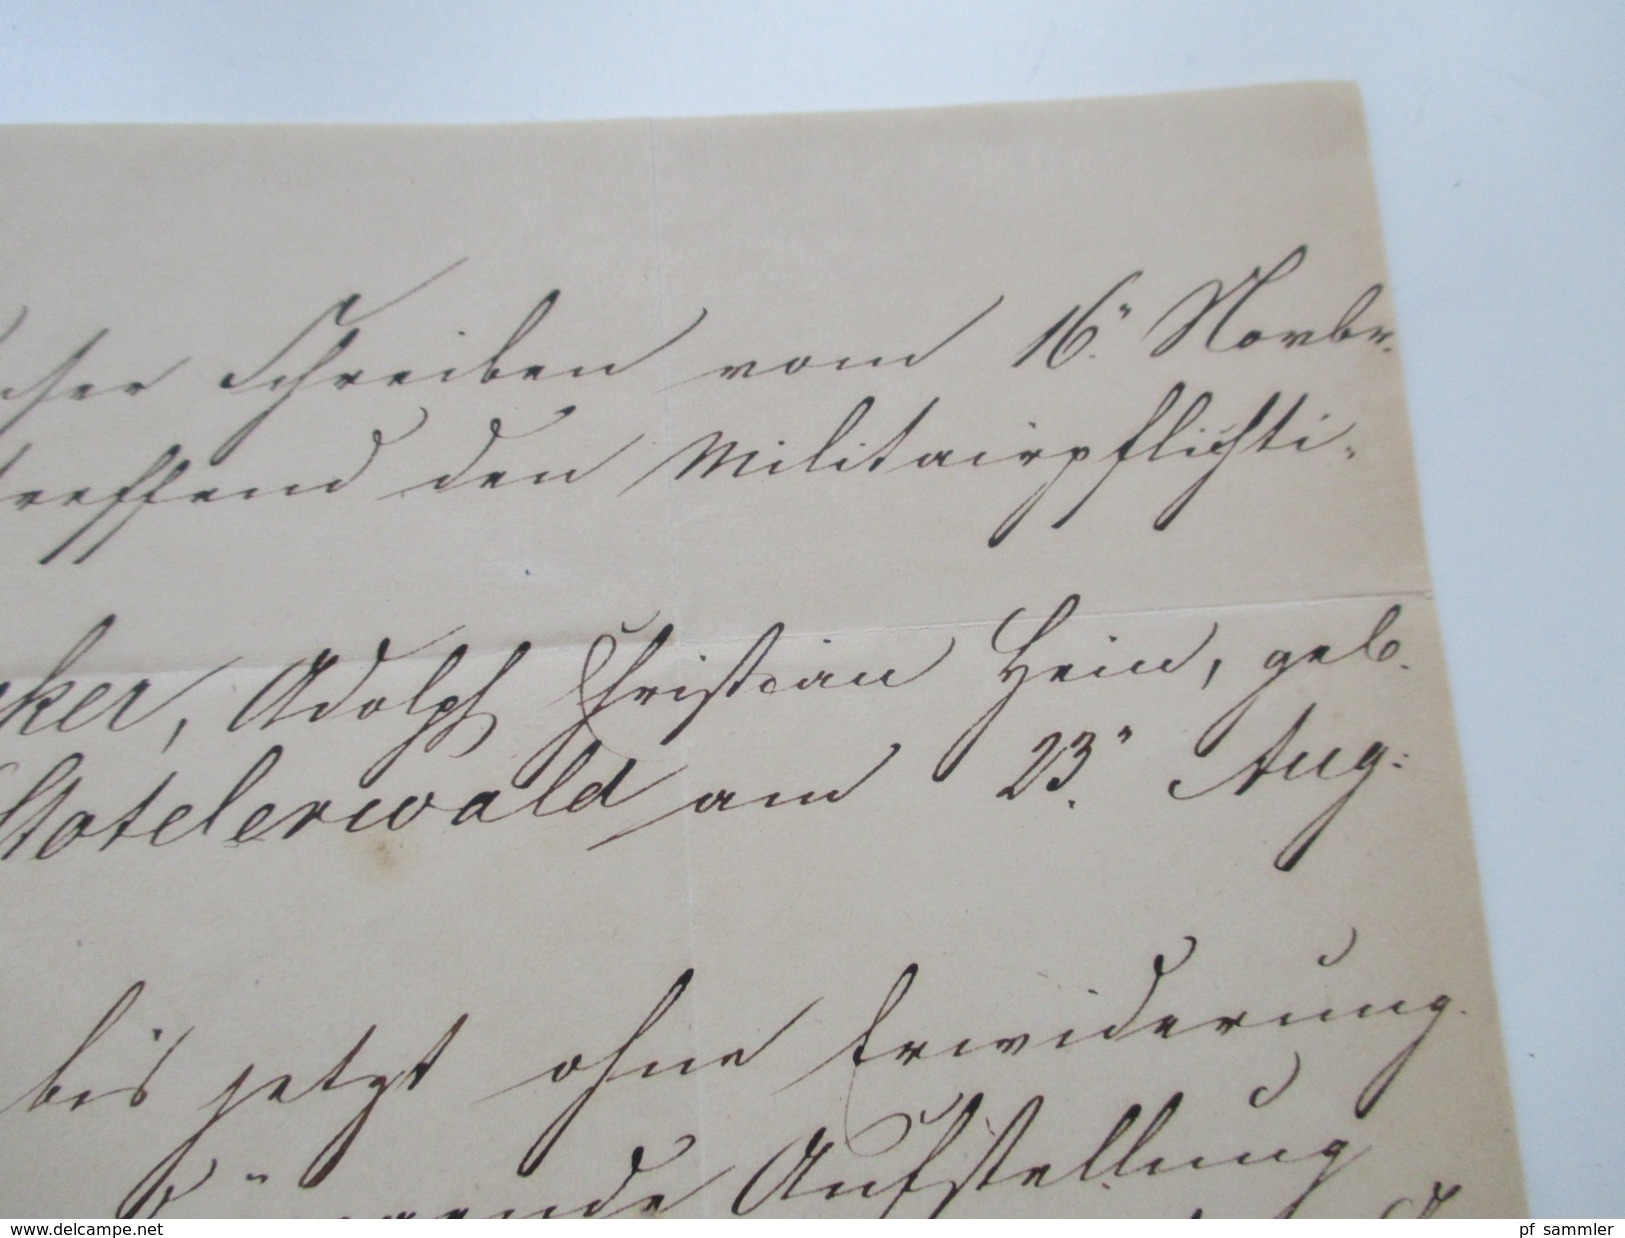 Schreiben vom 16. Novbr.
treffend den Militairpflichti-
ker, Adolph Christian Hein, geb.
Stotelerwald am 23. Aug:
bis jetzt ohne Erwiderung.
Aufstellung
delcampe.net
pf sammler